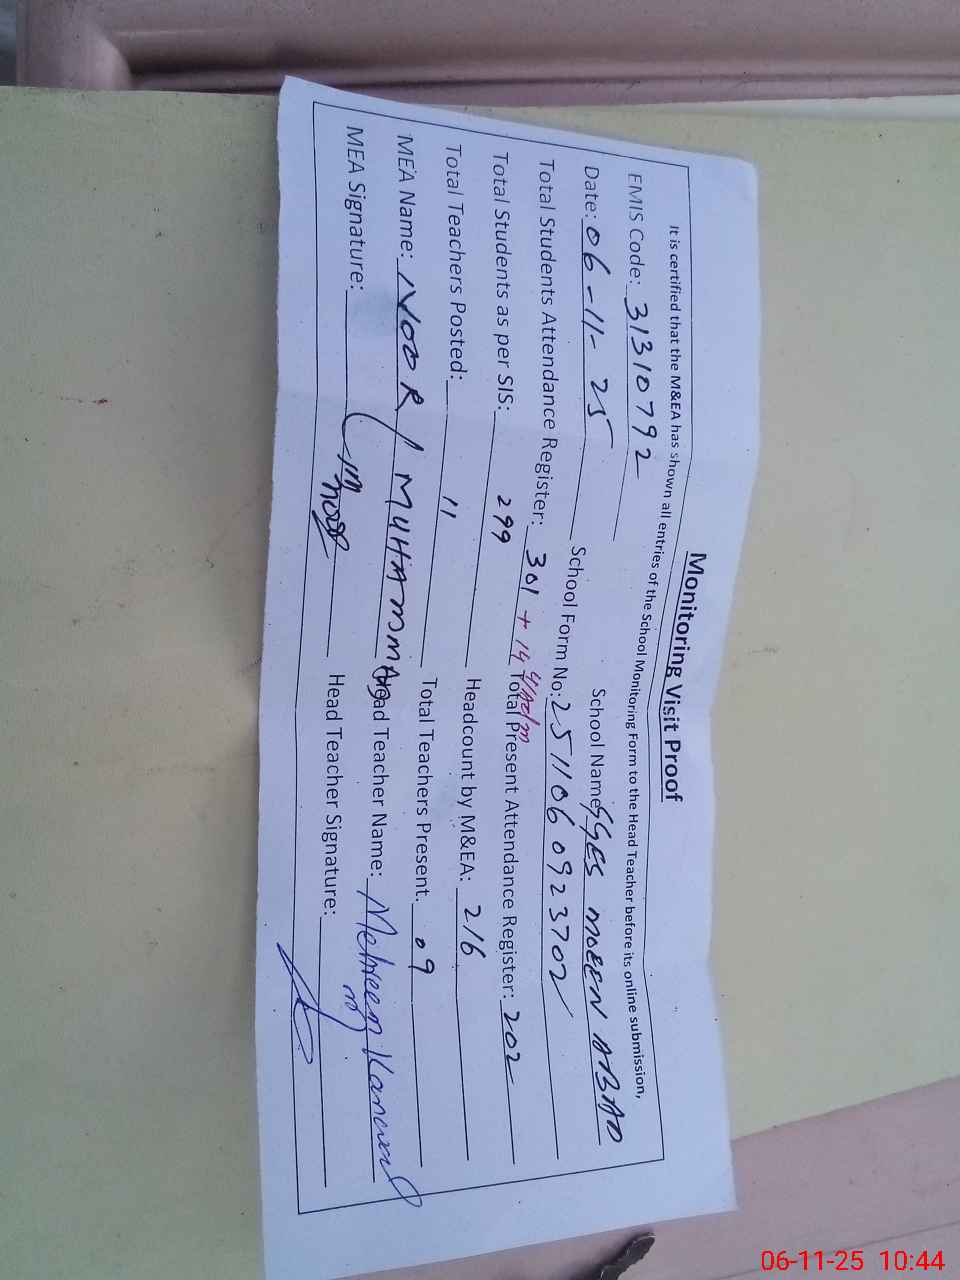 Monitoring Visit Proof
It is certified that the M&EA has shown all entries of the School Monitoring Form to the Head Teacher before its online submission,
EMIS Code: 31310792 School Name: GGES MOEEN ABAD
Date: 06-11-25 School Form No: 2511060923702
Total Students Attendance Register: 301 + 14 Total Present Attendance Register: 202
Total Students as per SIS: 299 Headcount by M&EA: 216
Total Teachers Posted: 11 Total Teachers Present. 09
MEA Name: NOOR MUHAMMAD Head Teacher Name: Mehreen Kanwal
MEA Signature: Head Teacher Signature:
06-11-25 10:44